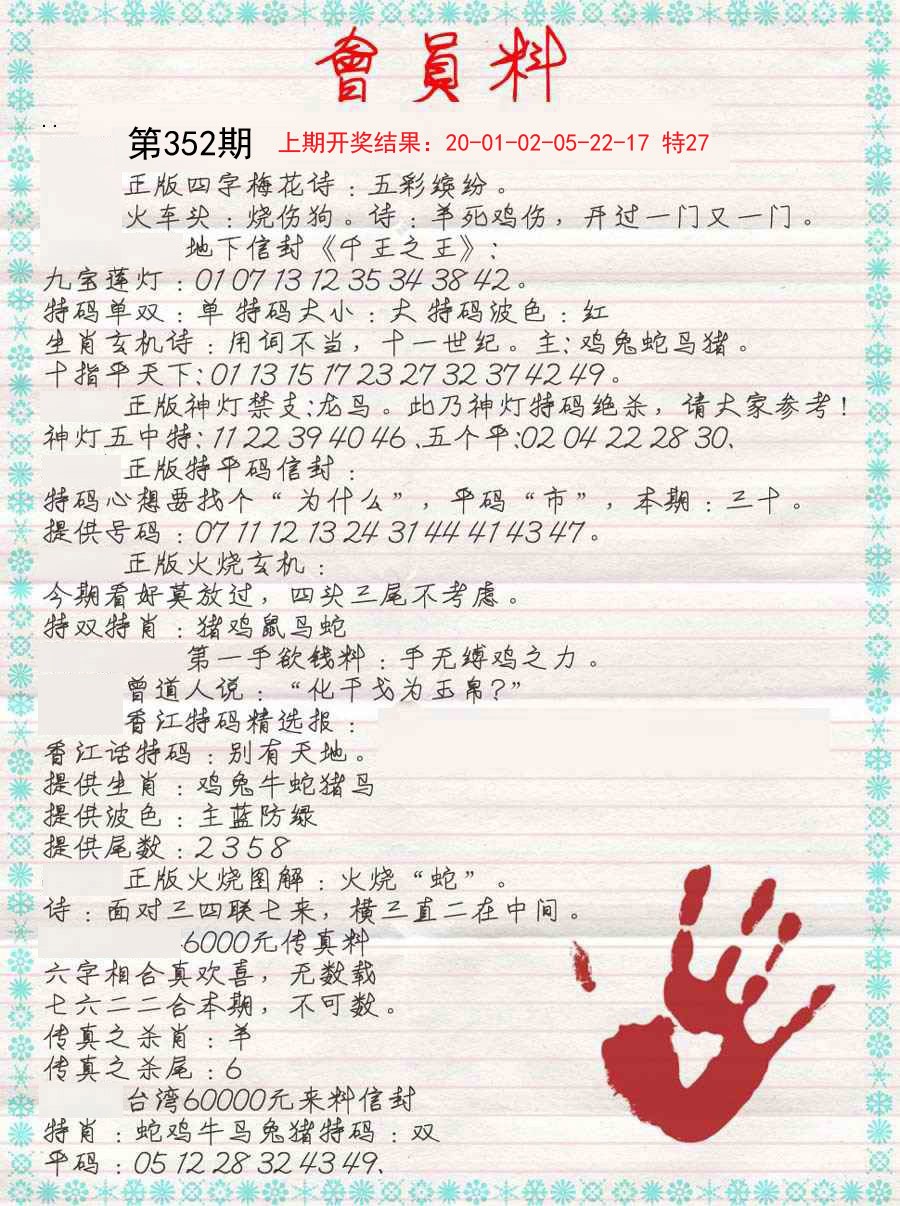 會員料
..
第352期 上期开奖结果：20-01-02-05-22-17 特27
正版四字梅花诗：五彩缤纷。
火车头：烧伤狗。诗：羊死鸡伤，开过一门又一门。
地下信封《千王之王》：
九宝莲灯：01 07 13 12 35 34 38 42。
特码单双：单 特码大小：大 特码波色：红
生肖玄机诗：用词不当，十一世纪。主：鸡兔蛇鸟猪。
十指平天下：01 13 15 17 23 27 32 37 42 49。
正版神灯禁支：龙鸟。此乃神灯特码绝杀，请大家参考！
神灯五中特：11 22 39 40 46、五个平：02 04 22 28 30、
正版特平码信封：
特码心想要找个“为什么”，平码“市”，本期：三十。
提供号码：07 11 12 13 24 31 44 41 43 47。
正版火烧玄机：
今期看好莫放过，四头三尾不考虑。
特双特肖：猪鸡鼠鸟蛇
第一手欲钱料：手无缚鸡之力。
曾道人说：“化干戈为玉帛？”
香江特码精选报：
香江话特码：别有天地。
提供生肖：鸡兔牛蛇猪鸟
提供波色：主蓝防绿
提供尾数：2 3 5 8
正版火烧图解：火烧“蛇”。
诗：面对三四联七来，横三直二在中间。
6000元传真料
六字相合真欢喜，无数载
七六二二合本期，不可数。
传真之杀肖：羊
传真之杀尾：6
台湾60000元来料信封
特肖：蛇鸡牛鸟兔猪特码：双
平码：05 12 28 32 43 49、